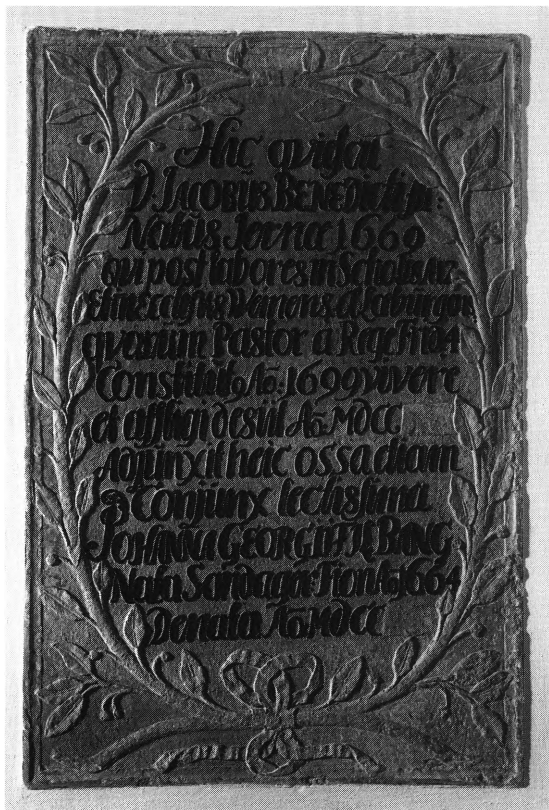 Hic
D. JACOBŨS BENEDICti
Natũs Jernæ 1669
qvi post labores in Scholis
Et in
qvorũm Pastor a Rege Frid 4
Constitũt9 Ao: 1699 vivere
et affligi desiit Ao. MDCC
Adjũnxit heic ossa etiam
Conjũnx lectissima
JOHANNA GEORGII FIL BANG
Nata Sandaga: Fion Ao 1664
Denata Ao. MDCC